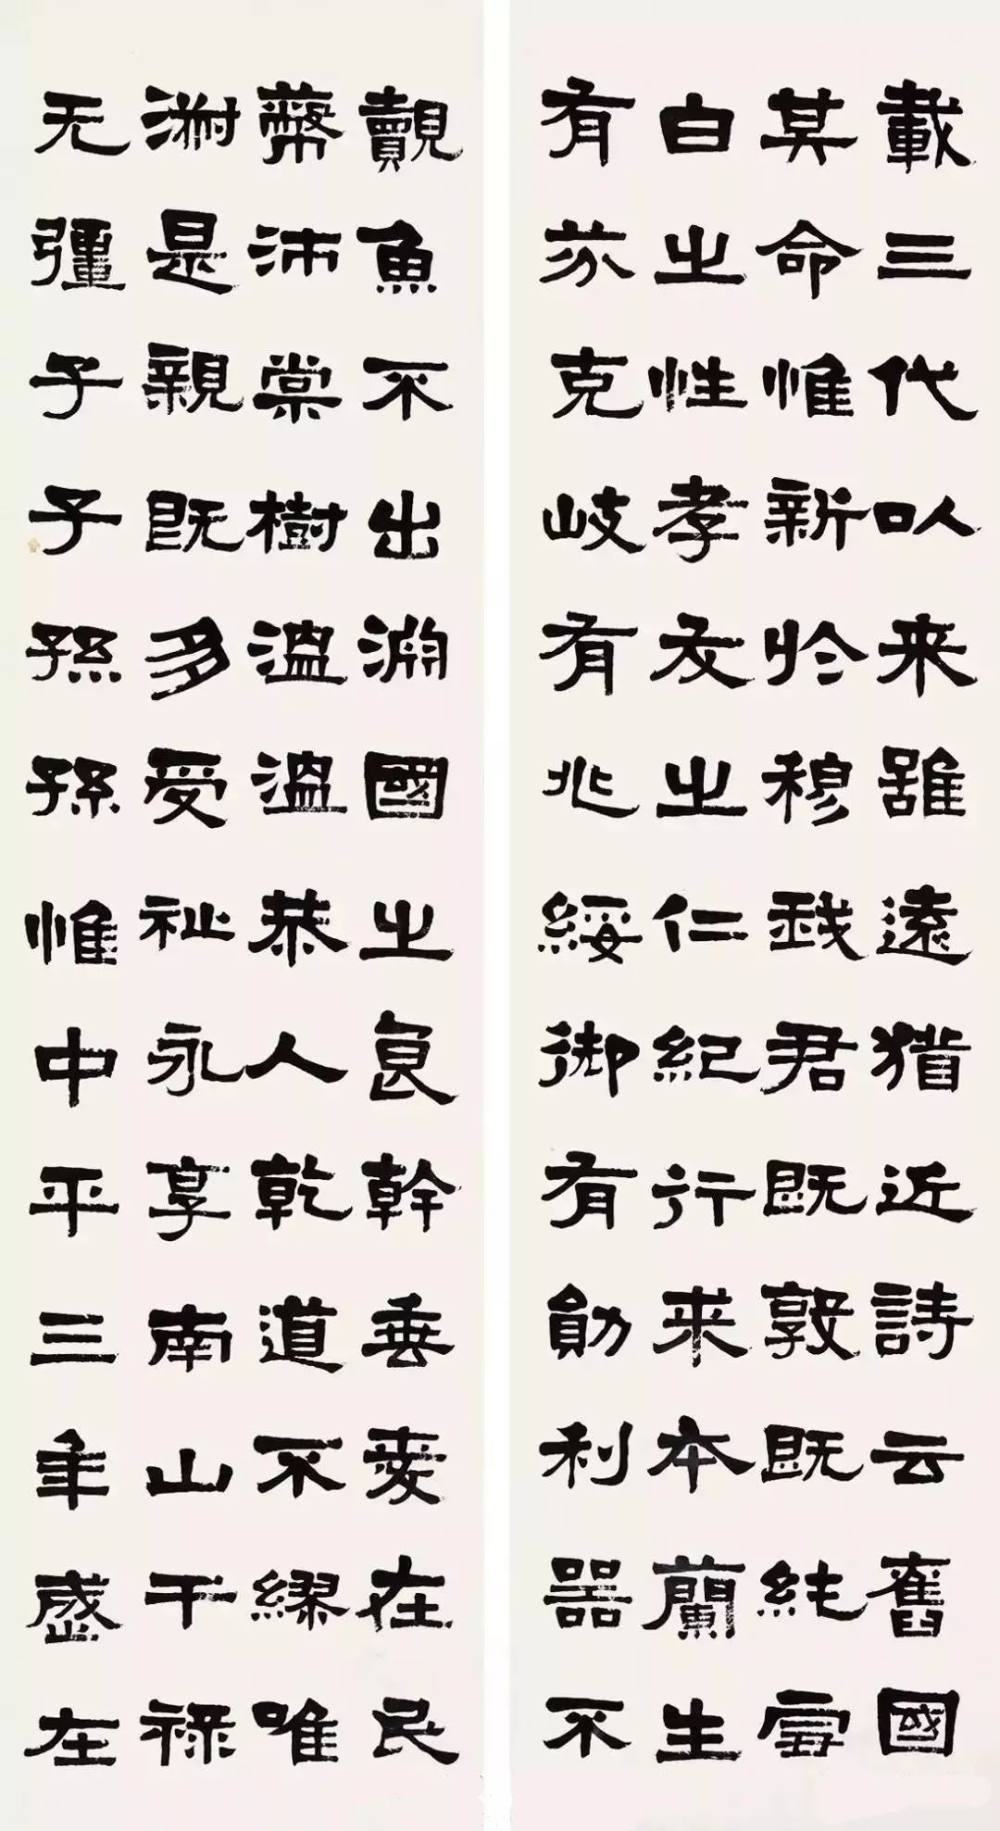 載三代以来雖遠猶近詩云舊國
其命惟新於穆我君既敦既純雪
白之性孝友之仁紀行来本蘭生
有芬克岐有兆綏御有勛利器不
覿魚不出淵國之良幹垂愛在民
蔽沛棠樹温温恭人乾道不繆唯
淑是親既多受祉永享南山干禄
无彊子子孫孫惟中平三年歲在